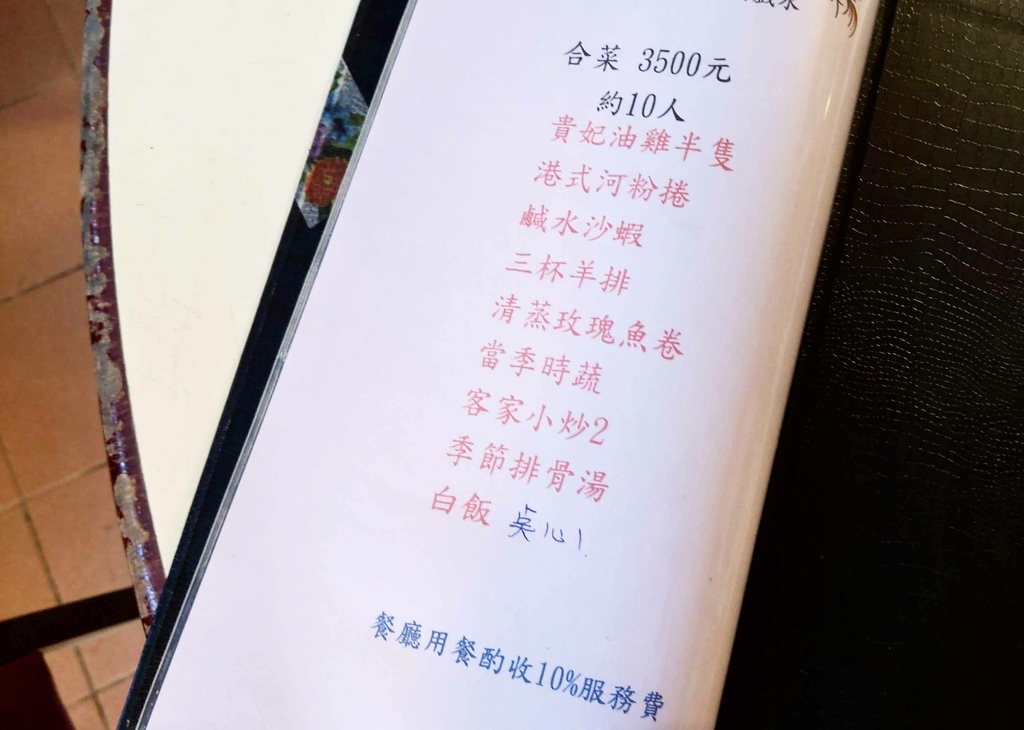 合菜 3500元
約10人
貴妃油雞半隻
港式河粉捲
鹹水沙蝦
三杯羊排
清蒸玫瑰魚卷
當季時蔬
客家小炒2
季節排骨湯
白飯 點心1
餐廳用餐酌收10%服務費